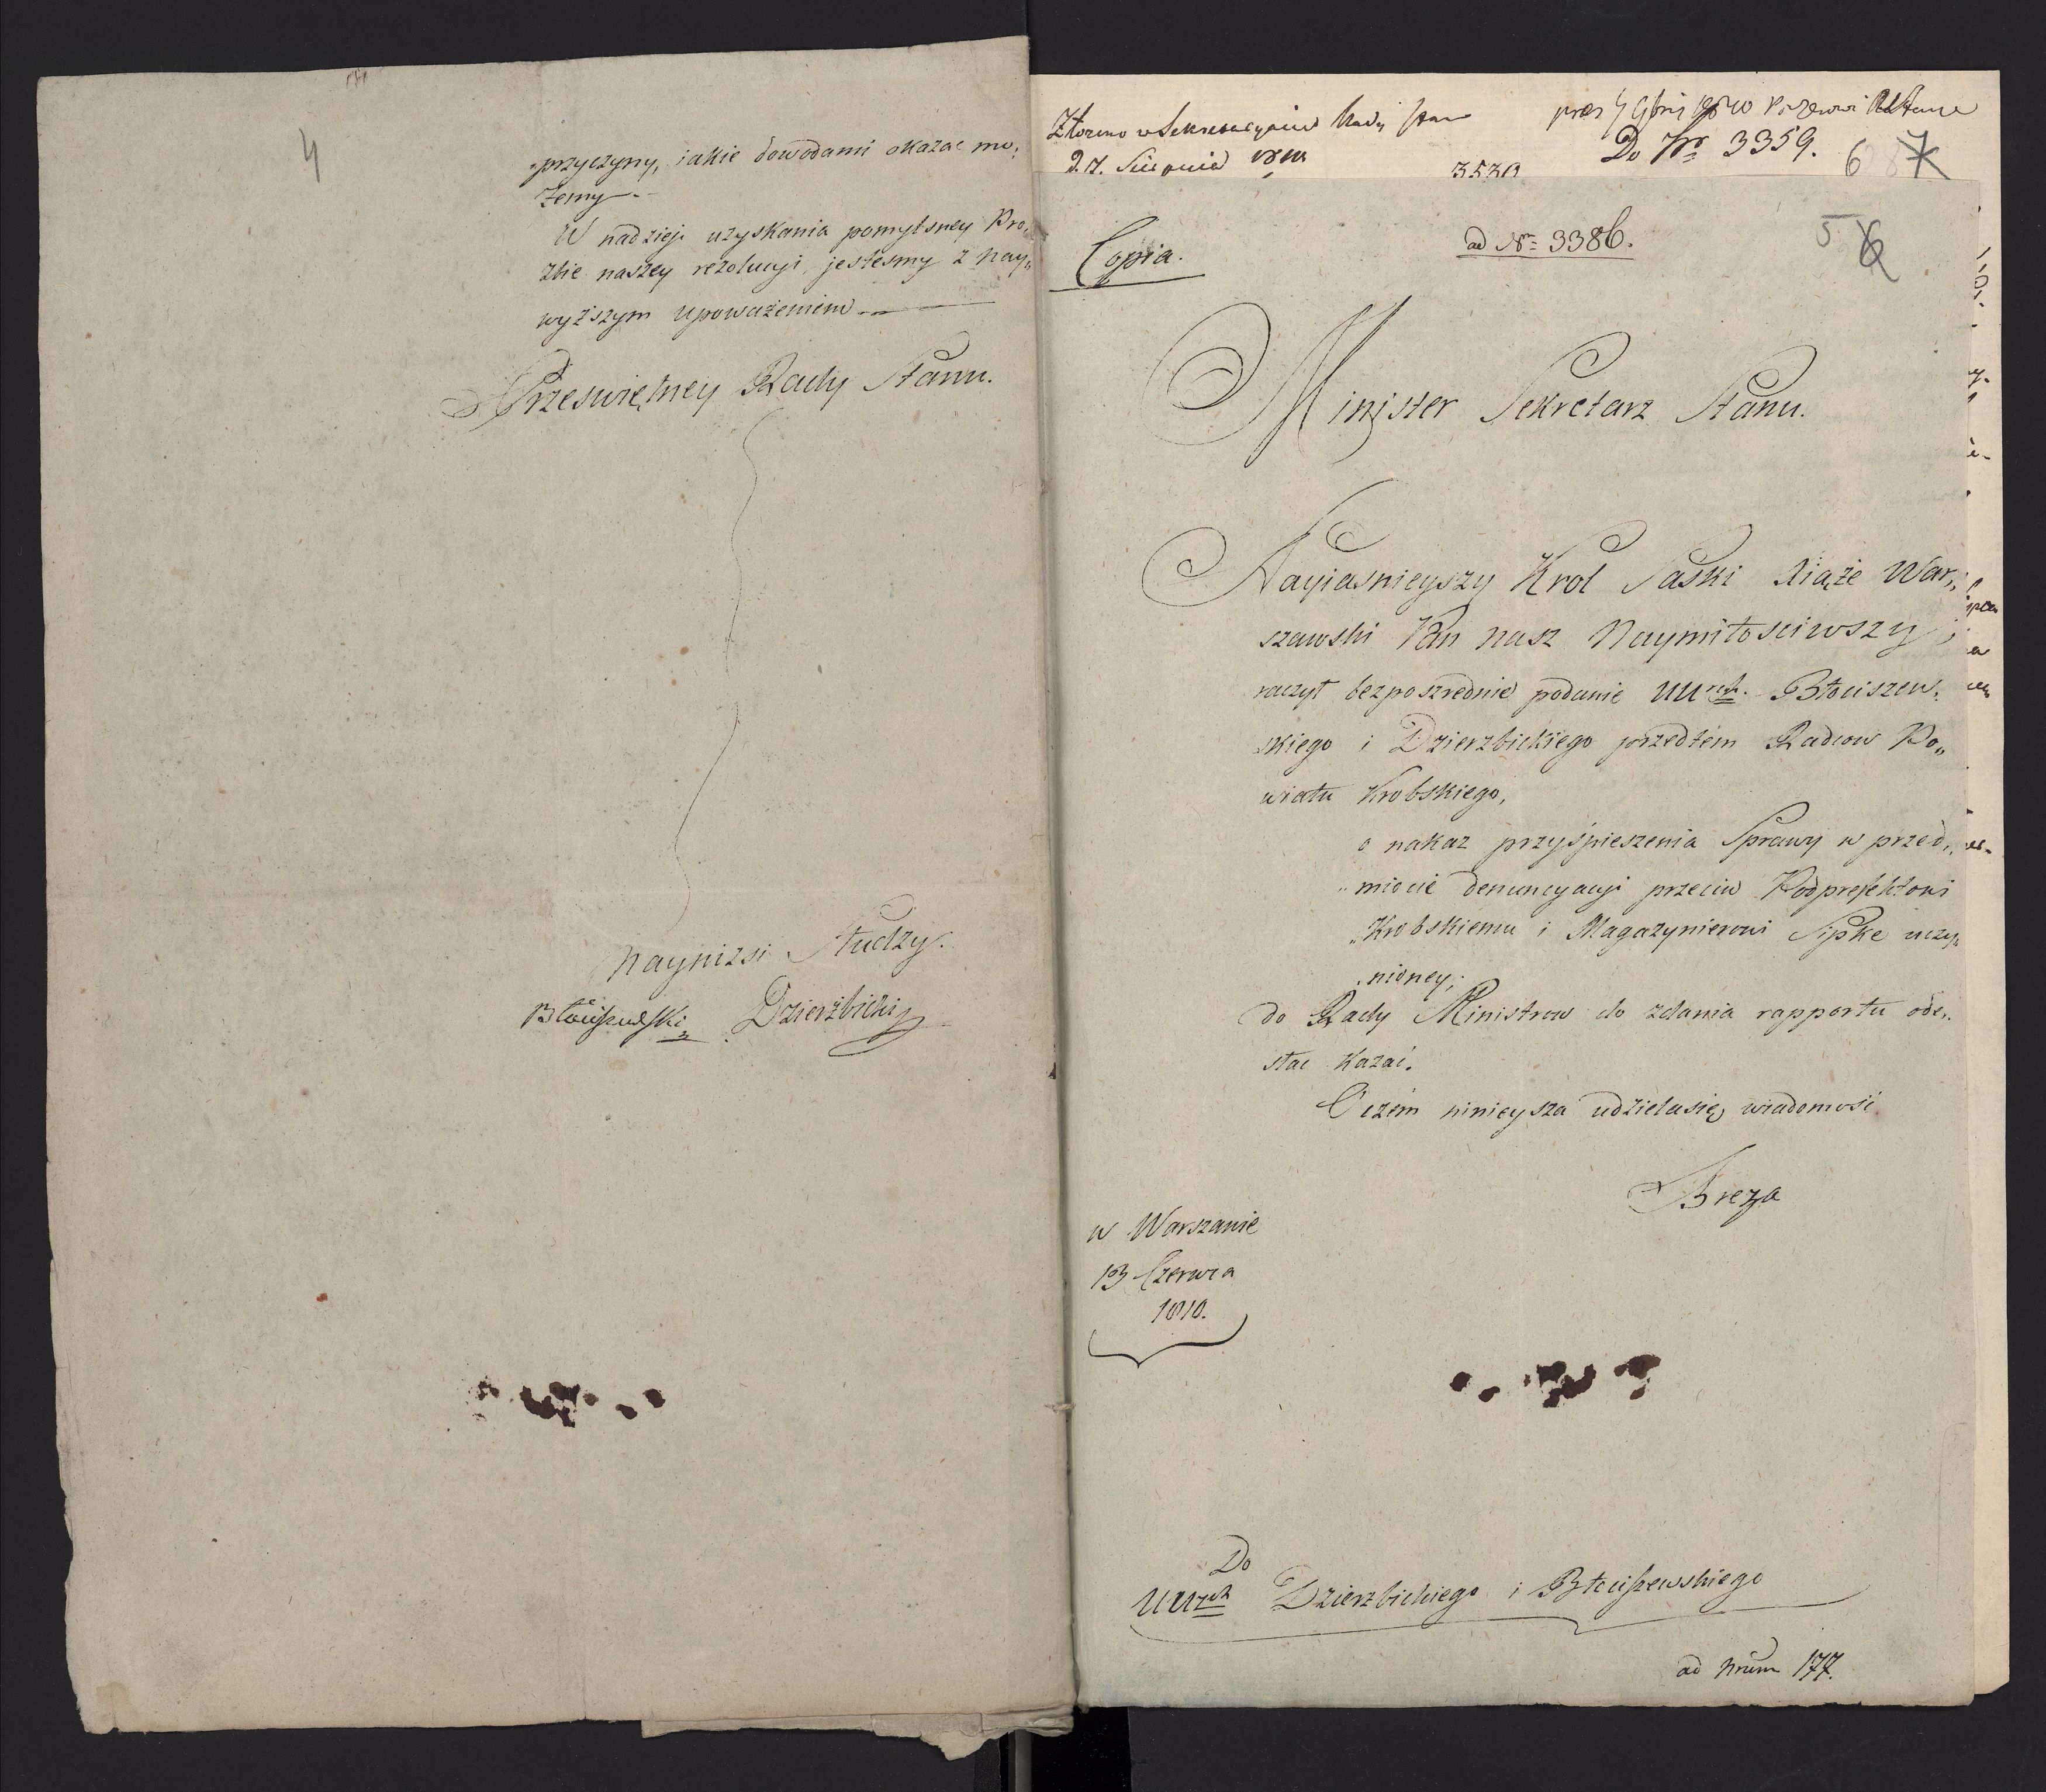 4
przyczyny, iakie dowodami okazac mo„
żemy. —
W nadziei uzyskania pomyslney Pro„
źbie naszey rezolucyi, jesteśmy z nay„
wyższym upoważeniem —
Przeswiętney Rady Stanu.
Nayniżsi Słudzy.
Błociszewski Dzierzbicki
Złożono w Sekretaryacie Rady Stanu
27. Sierpnia 1810
3530
Do Nr 3359.
6
7
Copia.
ad Nrm 3386.
5
6
Minister Sekretarz Stanu.
Nayiasnieyszy Krol Saski Xiąże War„
szawski Pan nasz Naymiłosciwszy
raczył bezposzrednie podanie UUrch. Błociszew„
skiego i Dzierzbickiego przedtem Radcow Po„
wiatu Krobskiego,
o nakaz przyśpieszenia Sprawy w przed„
„miocie denuncyacyi przeciw Podprefektowi
„Krobskiemu i Magazynierowi Sipke uczy„
„nioney;
do Rady Ministrow do zdania rapportu ode„
słac kazać.
O czem ninieysza udziela się wiadomość
Breza
w Warszawie
13 Czerwca
1810.
Do
UUrch Dzierzbickiego i Błociszewskiego
ad Nrum 177.